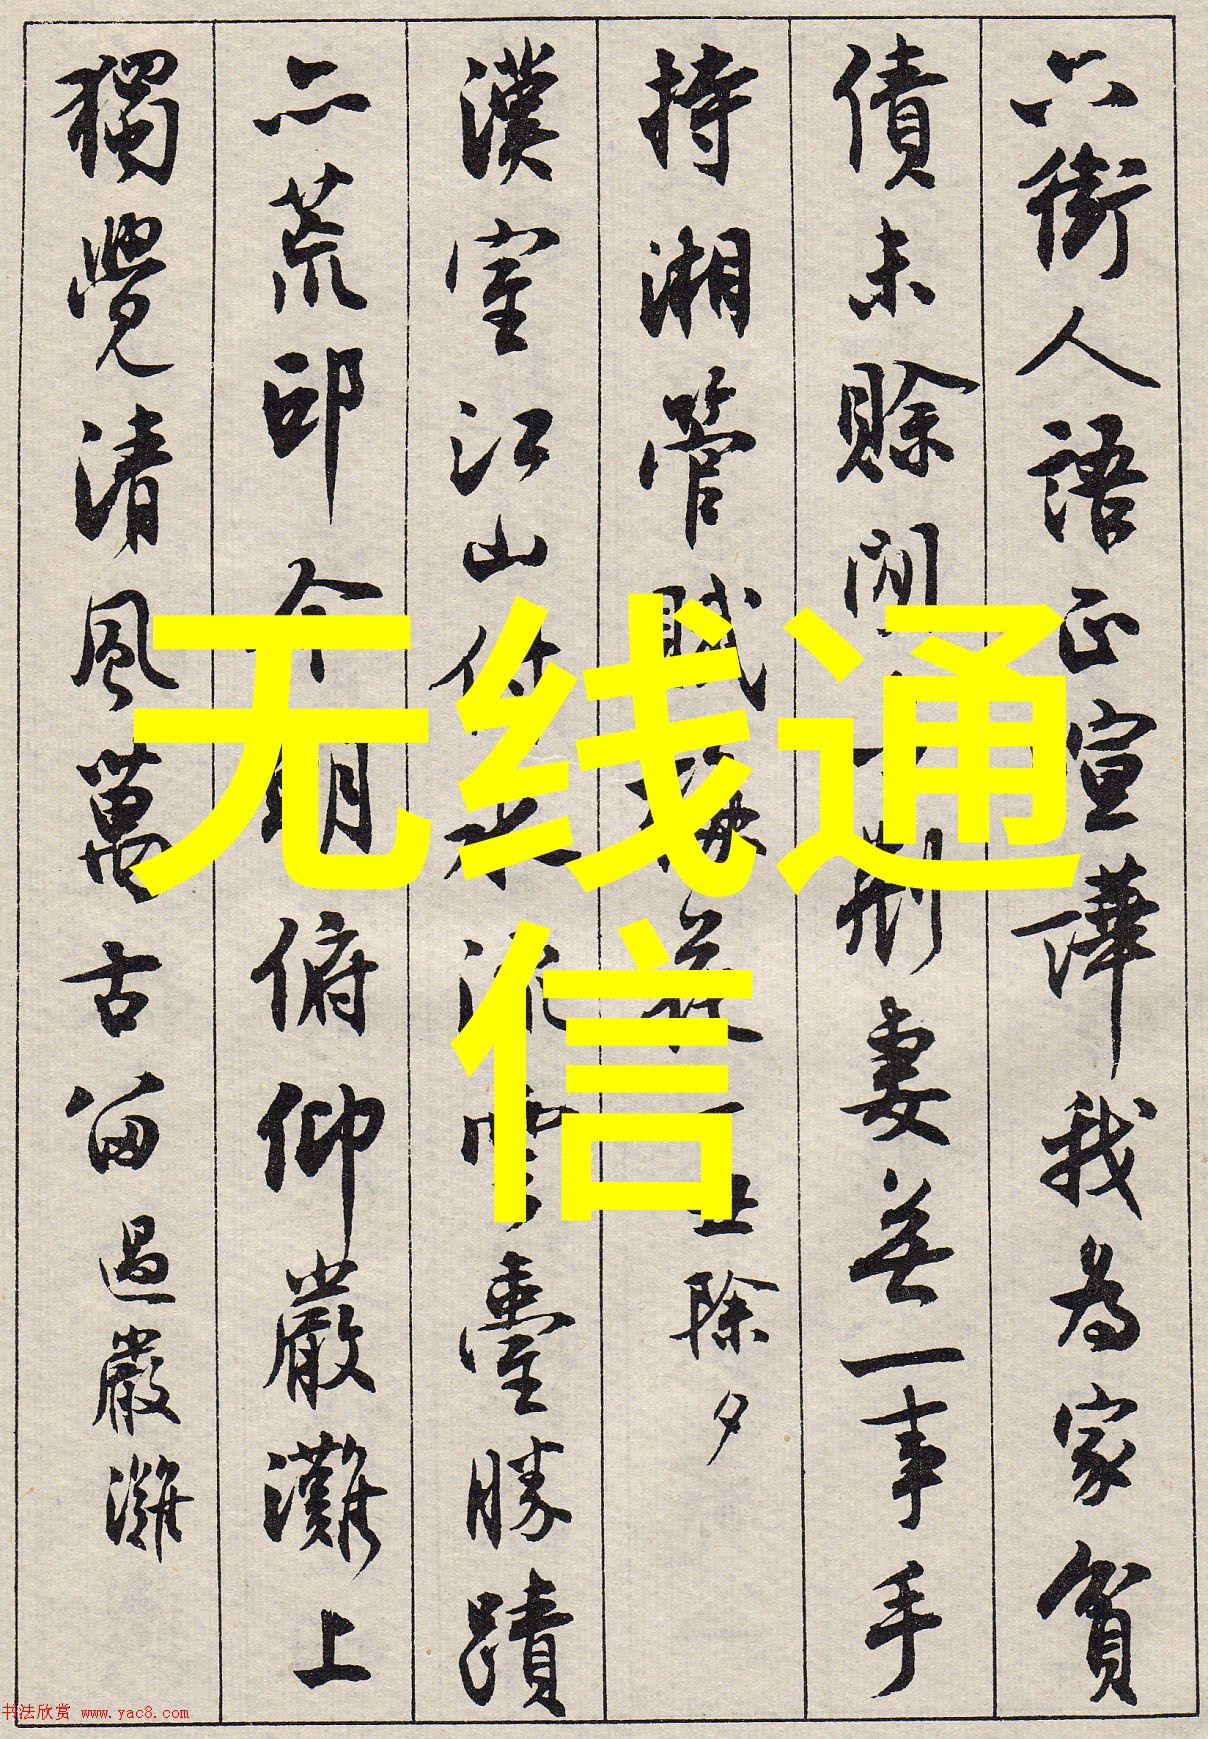 六街人語正喧譁我為家貧
債未賒閒
荊妻無一事手
持湘管賦梅花
除夕
漢室江山付水流雲臺勝蹟
亦荒邱
俯仰嚴灘上
獨覺清風萬古留過嚴灘
无线通
信
书法欣赏 www.yac8.com